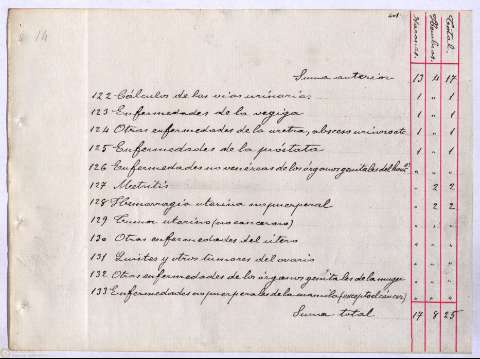 14
Varones. Hembras. Total.
Suma anterior 13 4 17
122 Cálculos de las vias urinarias 1 " 1
123 Enfermedades de la vegiga 1 " 1
124 Otras enfermedades de la uretra, absceso urinoso etc 1 " 1
125 Enfermedades de la próstata 1 " 1
126 Enfermedades no venéreas de los órganos genitales del homb. " " "
127 Metritis " 2 2
128 Hemorragia uterina no puerperal " 2 2
129 Tumor uterino (no canceroso) " " "
130 Otras enfermedades del utero " " "
131 Quistes y otros tumores del ovario " " "
132 Otras enfermedades de los órganos genitales de la muger " " "
133 Enfermedades no puerperales de la mamila (excepto el cáncer) " " "
Suma total 17 8 25